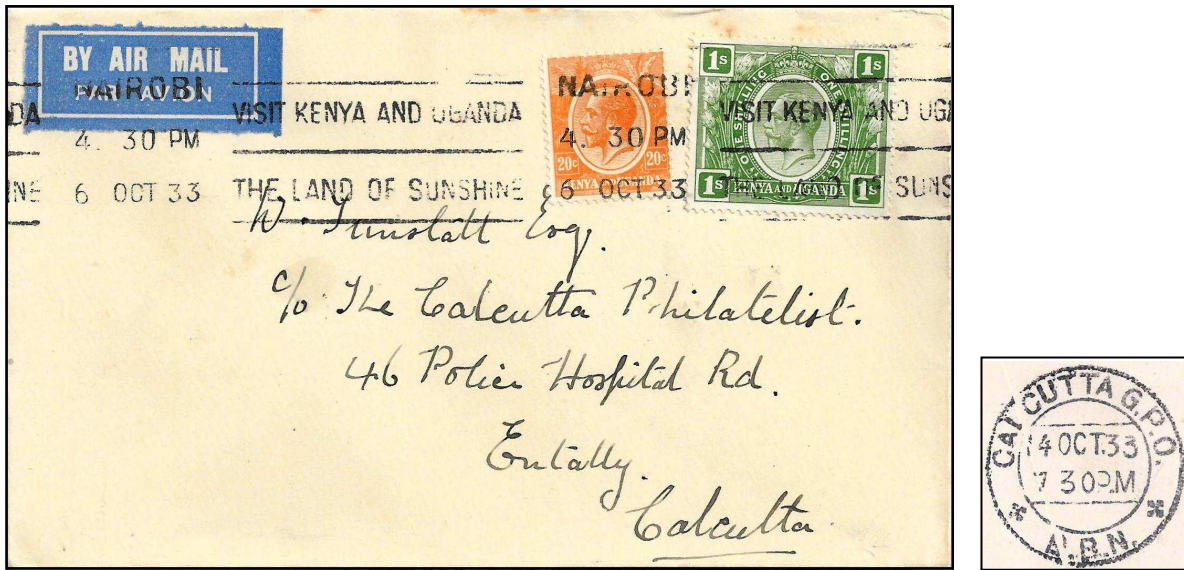 BY AIR MAIL
PAR AVION
NAIROBI
4. 30 PM
6 OCT 33
VISIT KENYA AND UGANDA
THE LAND OF SUNSHINE
NAIROBI
4. 30 PM
6 OCT 33
VISIT KENYA AND UGA
THE LAND OF SUNS
DA
INE
20c 20c
KENYA AND
1s 1s
ONE SHILLING ONE SHILLING
1s KENYA AND UGANDA 1s
W. Tunstall Esq.
c/o The Calcutta Philatelist.
46 Police Hospital Rd.
Entally.
Calcutta
CALCUTTA G.P.O.
14 OCT.33
7 30 P.M